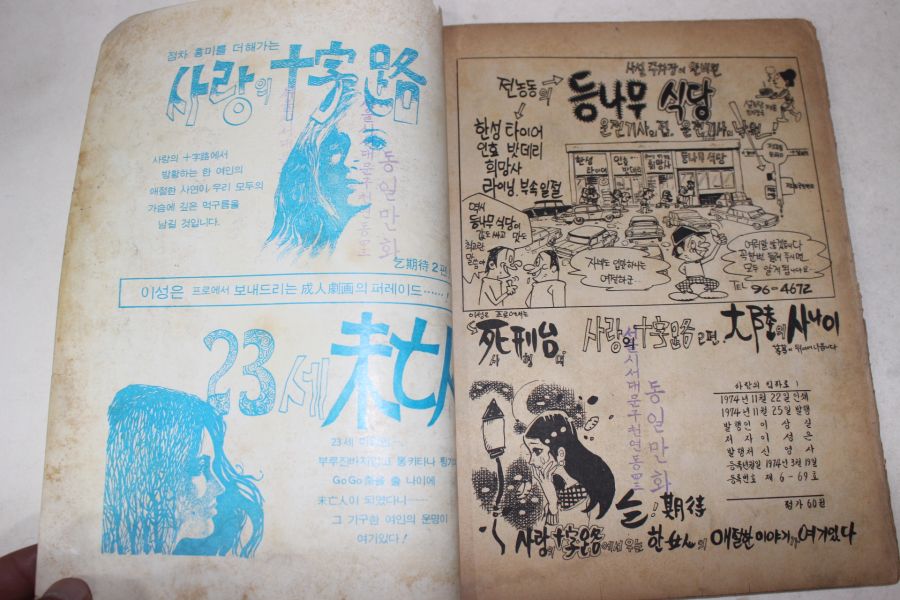 점차 흥미를 더해가는
사랑의 十字路
사랑의 十字路에서
방황하는 한 여인의
애절한 사연이 우리 모두의
가슴에 깊은 먹구름을
남길 것입니다.
乞期待 2편
이성은 프로에서 보내드리는 成人劇画의 퍼레이드……!
23세 未亡人
23세
부루진바지입고 통키타나
GoGo춤을 출 나이에
未亡人이 되었다니……
그 기구한 여인의 운명이
여기있다!
동일만화
전농동의
등나무 식당
운전기사의 집, 운전기사의 낙원
한성 타이어
인호 밧데리
희망사
라이닝 부속일절
한성 타이어
인호 밧데리
희망사
등나무 식당
등나무 식당이
TEL 96-4672
이성은 프로에서는
死刑台
사형대
사랑의 十字路 2편.
大陸의 사나이
사랑의 십자로 1
1974년 11월 22일 인쇄
1974년 11월 25일 발행
발행인 이상실
저자 이성은
발행처 신영사
등록년월일 1974년 3월 19일
등록번호 제 6-69호
정가 60원
서울시서대문구천연동
동일만화
期待
사랑의 十字路에서 우는 한 女人의 애절한 이야기가 여기있다